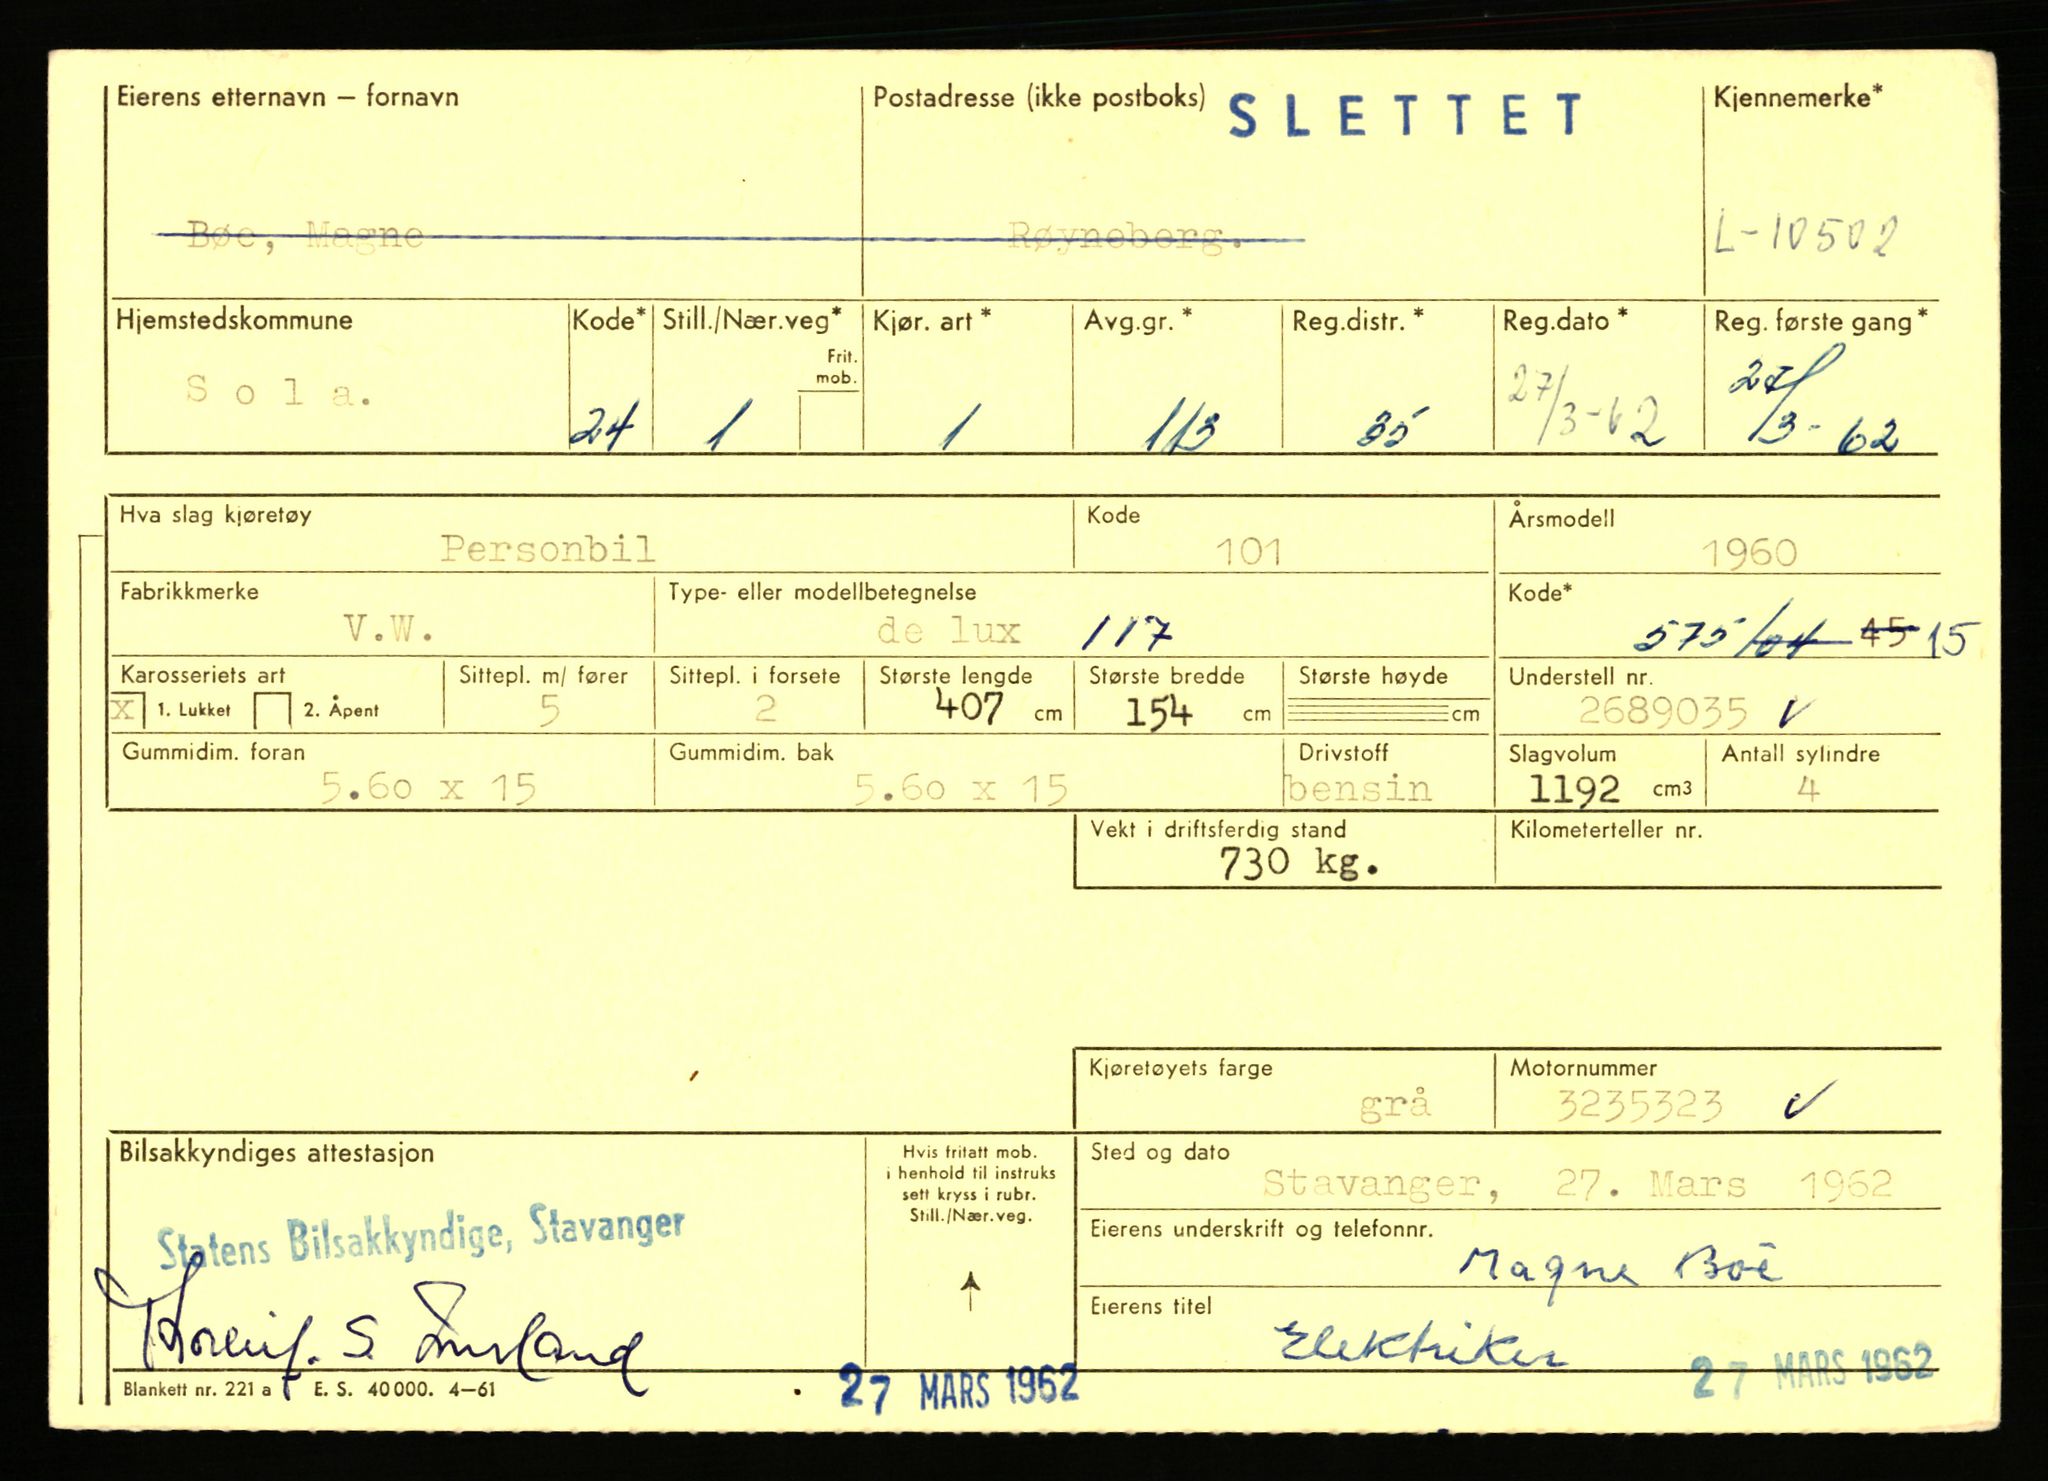 Eierens etternavn – fornavn Postadresse (ikke postboks) SLETTET Kjennemerke*
Bøe, Magne Røyneberg. L-10502
Hjemstedskommune Kode* Still./Nær.veg* Kjør. art * Avg.gr. * Reg.distr. * Reg.dato * Reg. første gang *
Frit.
mob.
Sola. 24 1 1 113 35 27/3-62 27/3-62
Hva slag kjøretøy Kode Årsmodell
Personbil 101 1960
Fabrikkmerke Type- eller modellbetegnelse Kode*
V.W. de lux 117 575/04 45 15
Karosseriets art Sittepl. m/ fører Sittepl. i forsete Største lengde Største bredde Største høyde Understell nr.
X 1. Lukket 2. Åpent 5 2 407 cm 154 cm cm 2689035 ✓
Gummidim. foran Gummidim. bak Drivstoff Slagvolum Antall sylindre
5.60 x 15 5.60 x 15 bensin 1192 cm3 4
Vekt i driftsferdig stand Kilometerteller nr.
730 kg.
Kjøretøyets farge Motornummer
grå 3235323 ✓
Bilsakkyndiges attestasjon
Statens Bilsakkyndige, Stavanger
Hvis fritatt mob.
i henhold til instruks
sett kryss i rubr.
Still./Nær.veg.
Sted og dato
Stavanger, 27. Mars 1962
Eierens underskrift og telefonnr.
Magne Böe
Eierens titel
Elektriker
Blankett nr. 221 a E. S. 40000. 4–61 27 MARS 1962 27 MARS 1962